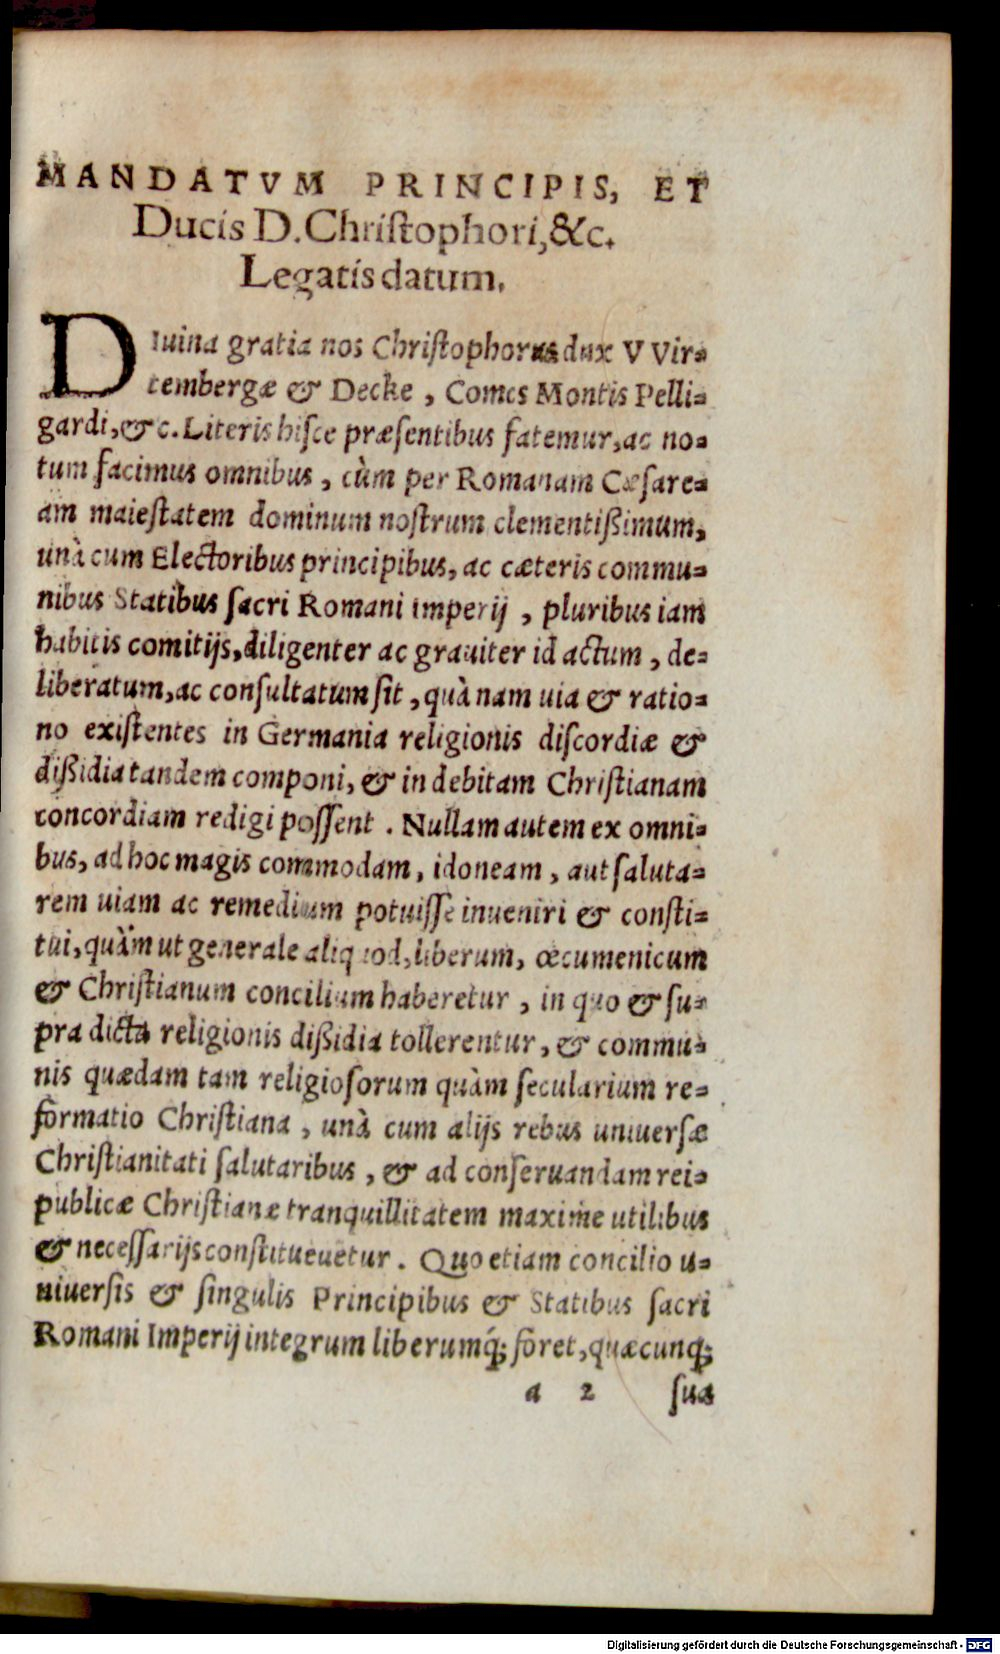 MANDATVM PRINCIPIS, ET
Ducis D. Chriſtophori, &c.
Legatis datum.
DIuina gratia nos Chriſtophorus dux VVir-
tembergæ & Decke, Comes Montis Pelli-
gardi, & c. Literis hiſce præſentibus fatemur, ac no-
tum facimus omnibus, cùm per Romanam Cæſare-
am maieſtatem dominum noſtrum clementißimum,
unà cum Electoribus principibus, ac cæteris commu-
nibus Statibus ſacri Romani imperij, pluribus iam
habitis comitijs, diligenter ac grauiter id actum, de-
liberatum, ac conſultatum ſit, quà nam uia & ratio-
no exiſtentes in Germania religionis diſcordiæ &
dißidia tandem componi, & in debitam Chriſtianam
concordiam redigi poſſent. Nullam autem ex omni-
bus, ad hoc magis commodam, idoneam, aut ſaluta-
rem uiam ac remedium potuiſſe inueniri & conſti-
tui, quàm ut generale aliquod, liberum, œcumenicum
& Chriſtianum concilium haberetur, in quo & ſu-
pra dicta religionis dißidia tollerentur, & commu-
nis quædam tam religioſorum quàm ſecularium re-
formatio Chriſtiana, unà cum alijs rebus uniuerſæ
Chriſtianitati ſalutaribus, & ad conſeruandam rei-
publicæ Chriſtianæ tranquillitatem maxime utilibus
& neceſſarijs conſtitueuetur. Quo etiam concilio u-
niuerſis & ſingulis Principibus & Statibus ſacri
Romani Imperij integrum liberumq́; foret, quæcunq;
a 2 ſua
Digitalisierung gefördert durch die Deutsche Forschungsgemeinschaft - DFG